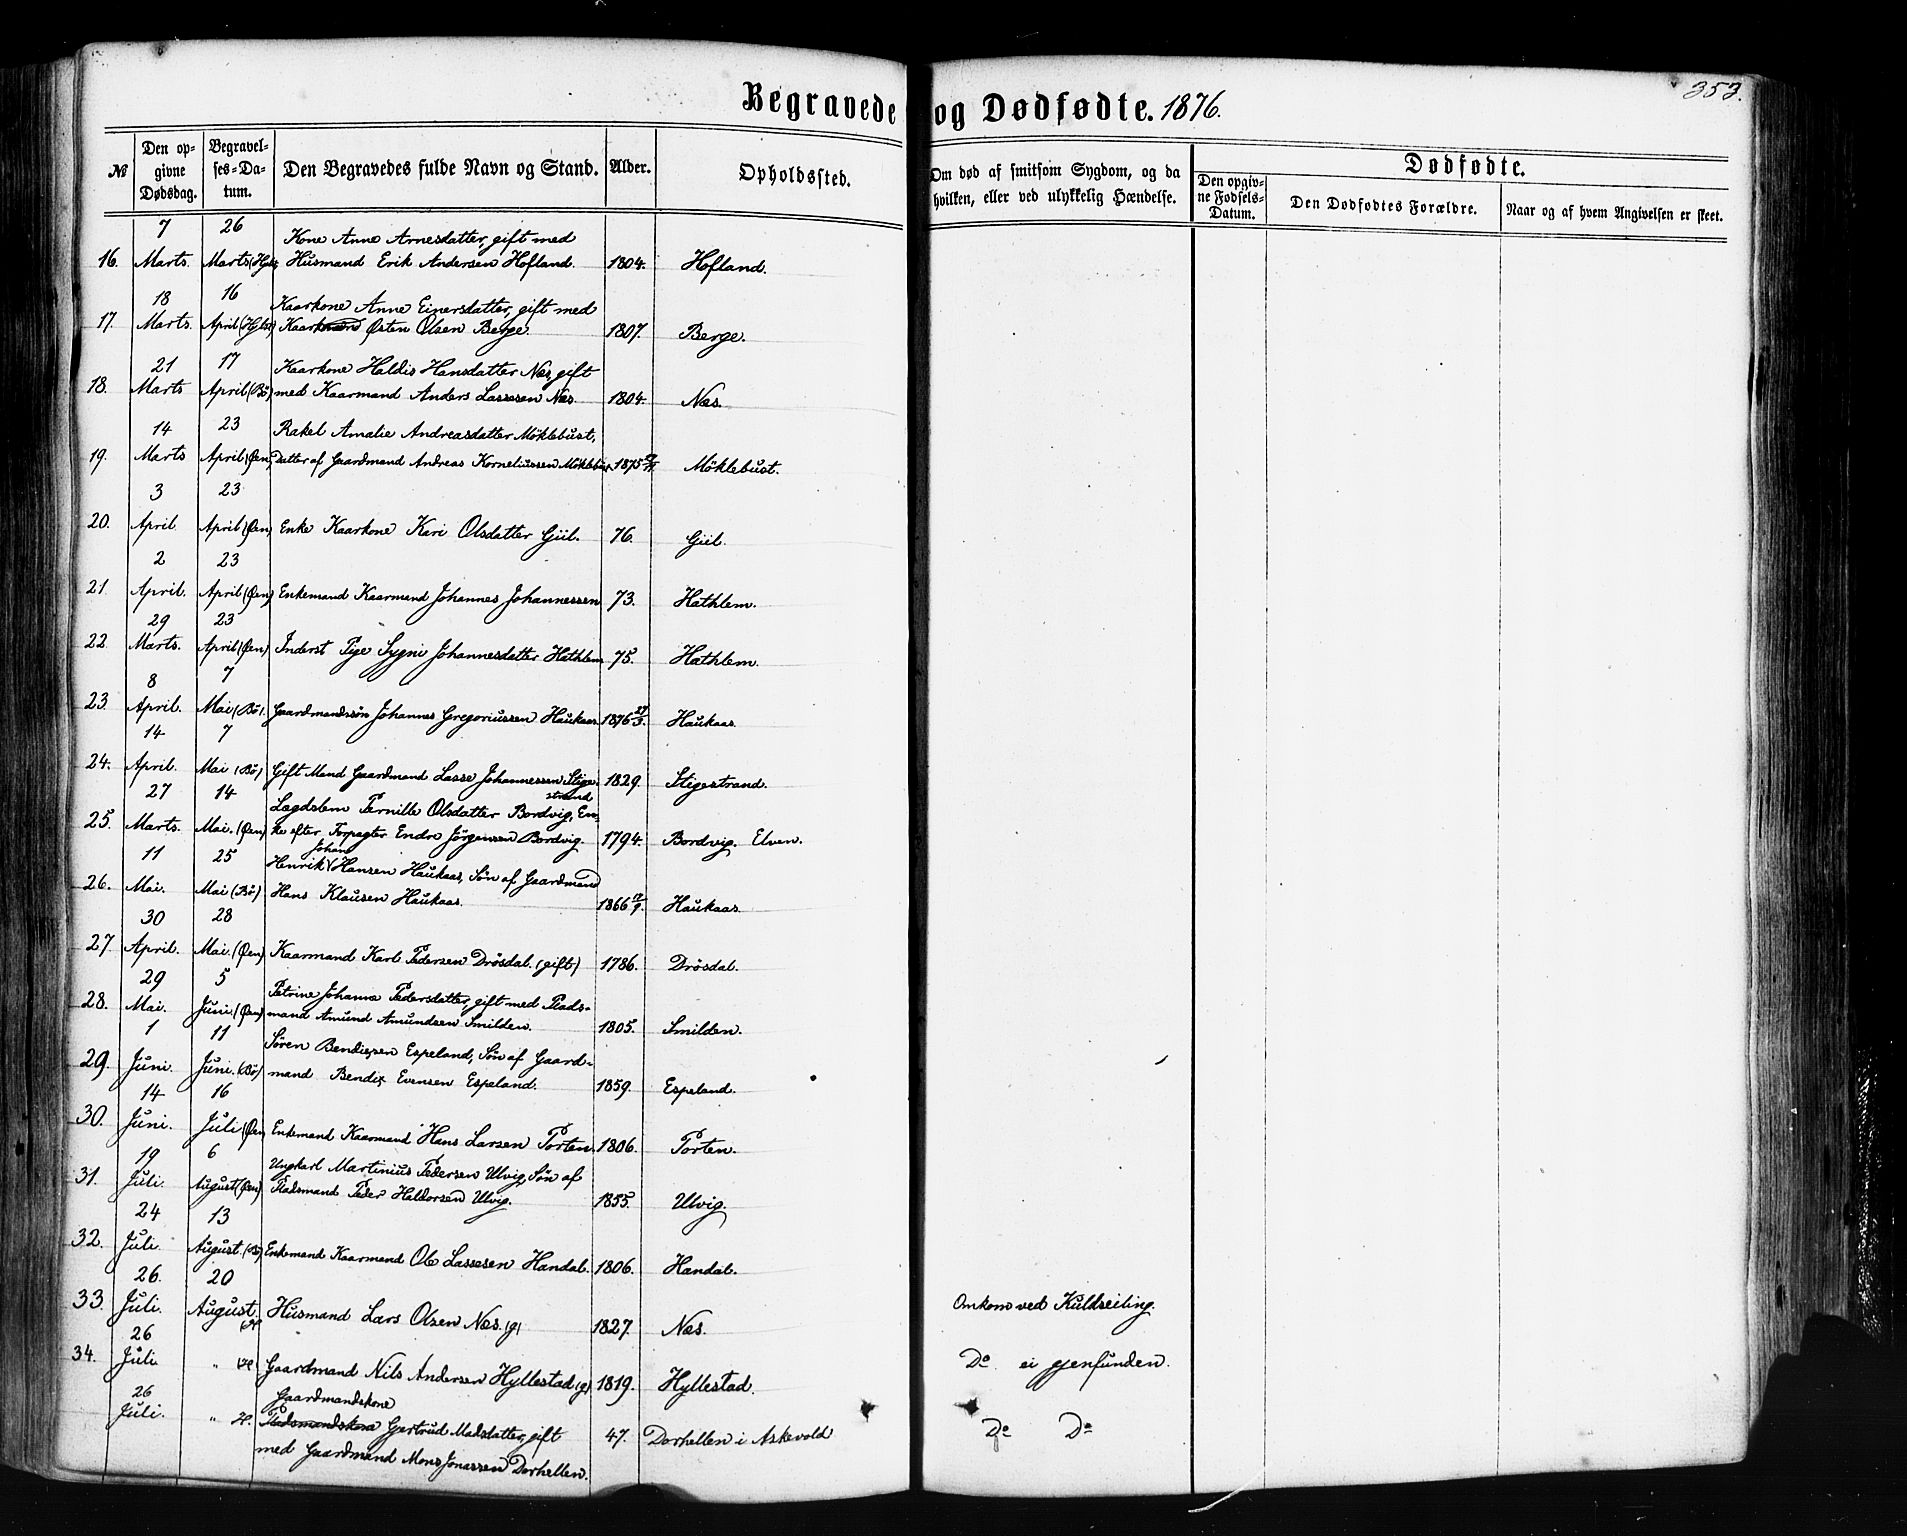 353.
Begravede og Dødfødte. 1876.
№
Den op-
givne
Dødsdag.
Begravel-
ses-Da-
tum.
Den Begravedes fulde Navn og Stand.
Alder.
Opholdssted.
Om død af smitsom Sygdom, og da
hvilken, eller ved ulykkelig Hændelse.
Dødfødte.
Den opgiv-
ne Fødsels-
Datum.
Den Dødfødtes Forældre.
Naar og af hvem Angivelsen er skeet.
7 26 Kone Anne Arnesdatter, gift med
16. Marts. Marts Husmand Erik Andersen Hofland. 1804. Hofland.
18 16 Kaarkone Anne Einersdatter, gift med
17. Marts. April (Hylst) Kaarmand Østen Olsen Berge. 1807. Berge.
21 17 Kaarkone Haldis Hansdatter Næs, gift
18. Marts April (Bø) med Kaarmand Anders Lassesen Næs. 1804. Næs.
14 23 Rakel Amalie Andreasdatter Møklebust,
19. Marts April (Øen) Datter af Gaardmand Andreas Korneliussen Møklebust 1875 Møklebust.
3 23
20. April. April (Øen) Enke Kaarkone Kari Olsdatter Giil. 76. Giil.
2 23
21. April. April (Øen) Enkemand Kaarmand Johannes Johannessen 73. Hathlem.
29 23
22 Marts. April (Øen) Inderst Pige Sygni Johannesdatter Hathlem 75. Hathlem.
8 7
23 April. Mai (Bø). Gaardmandssøn Johannes Gregoriussen Haukaas. 1876 27/3. Haukaas.
14 7
24. April. Mai (Bø) Gift Mand Gaardmand Lasse Johannessen Stige- 1829. Stigestrand.
strand
27 14 Lægdslem Pernille Olsdatter Bordvig, En-
25. Marts. Mai. (Øen) ke efter Forpagter Endre Jørgensen Bordvig. 1794. Bordvig. Elven.
Johan
11 25 Henrik Hansen Haukaas, Søn af Gaardmand
26. Mai. Mai (Bø) Hans Klausen Haukaas. 1866 Haukaas.
30 28
27. April. Mai. (Øen) Kaarmand Karl Pedersen Drösdal. (gift) 1786. Drösdal.
29 5 Petrine Johanna Pedersdatter, gift med Plads-
28. Mai. Juni. (Øen) mand Amund Amundsen Smilden. 1805. Smilden.
1 11 Søren Bendixsen Espeland, Søn af Gaard-
29. Juni. Juni. (Bø) mand Bendix Evensen Espeland. 1859. Espeland.
14 16
30. Juni. Juli (Øen) Enkemand Kaarmand Hans Larsen Porten. 1806. Porten.
19 6 Ungkarl Martinius Pedersen Ulvig, Søn af
31. Juli. August (Øen) Pladsmand Peder Haldorsen Ulvig. 1855. Ulvig.
24 13
32. Juli. August. (Bø) Enkemand Kaarmand Ole Lassesen Handal. 1806. Handal.
26. 20
33. Juli. August. Husmand Lars Olsen Næs. (g) 1827. Næs. Omkom ved Kuldseiling.
26
34. Juli " Gaardmand Nils Andersen Hyllestad (g) 1819. Hyllestad. Do. ei gjenfunden.
26 Gaardmandskone
Juli. " Pladsmandskone Gertrud Madsdatter, gift 47. Dorhellen i Askevold Do Do
med Gaardmand Mons Jonassen Dorhellen.